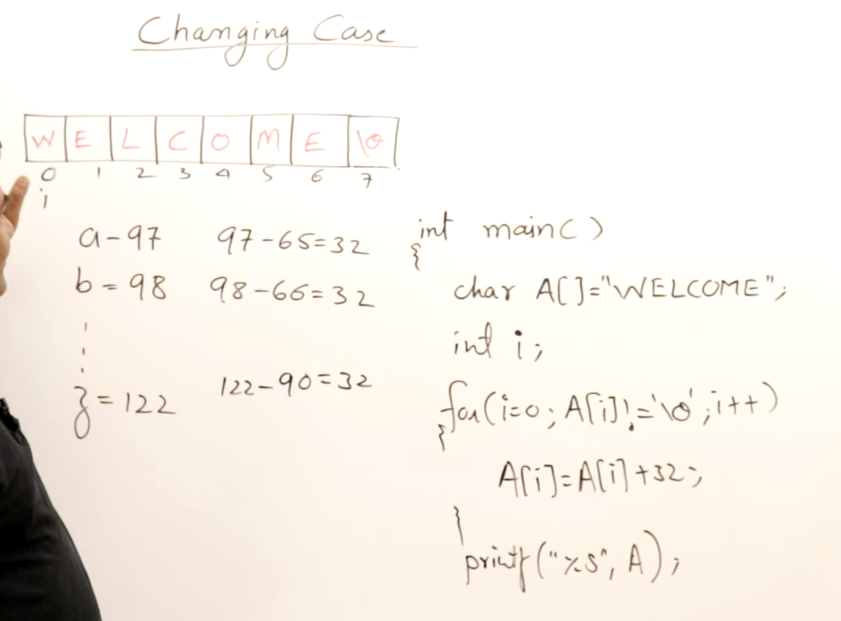 Changing Case
W E L C O M E \0
0 1 2 3 4 5 6 7
i
a-97 97-65=32
b=98 98-66=32
z=122 122-90=32
int main()
{
char A[]="WELCOME";
int i;
for(i=0; A[i]!='\0';i++)
{
A[i]=A[i]+32;
}
printf("%s", A);